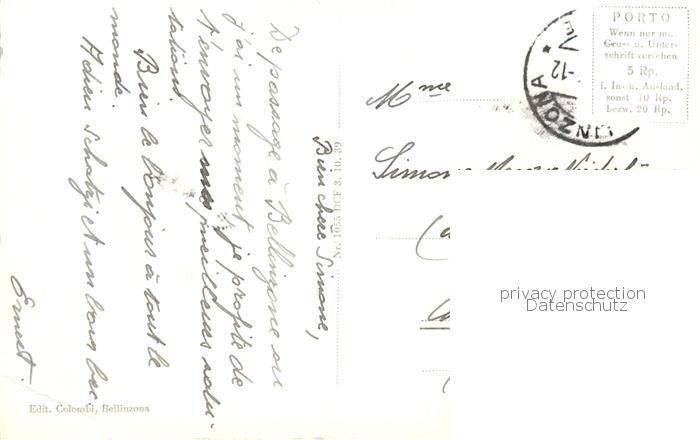 Bien chère Simone,
De passage à Bellinzone ou
j'ai un moment je profite de
t'envoyer mes meilleures salu-
tations
Bien le bonjour à tout le
monde.
Adieu Schatzi et un bons bec
Ernest.
Nr. 1055 DCF 3. 10. 39
Edit. Colombi, Bellinzona
Mme
Simone
INZONA
-12
PORTO
Wenn nur m.
Gruss u. Unter-
schrift versehen
5 Rp.
i. In- u. Ausland,
sonst 10 Rp.
bezw. 20 Rp.
privacy protection
Datenschutz